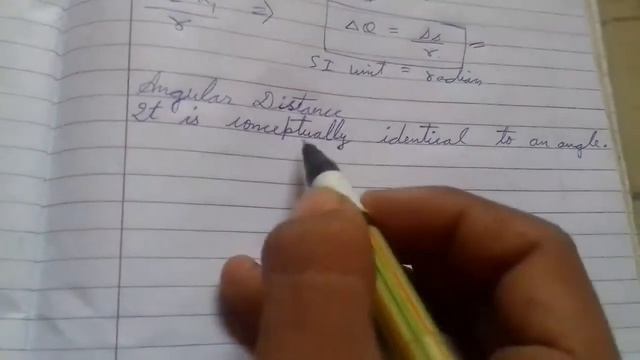 r => ΔQ = Δs/r =
SI unit = radian
Angular Distance
It is conceptually identical to an angle.